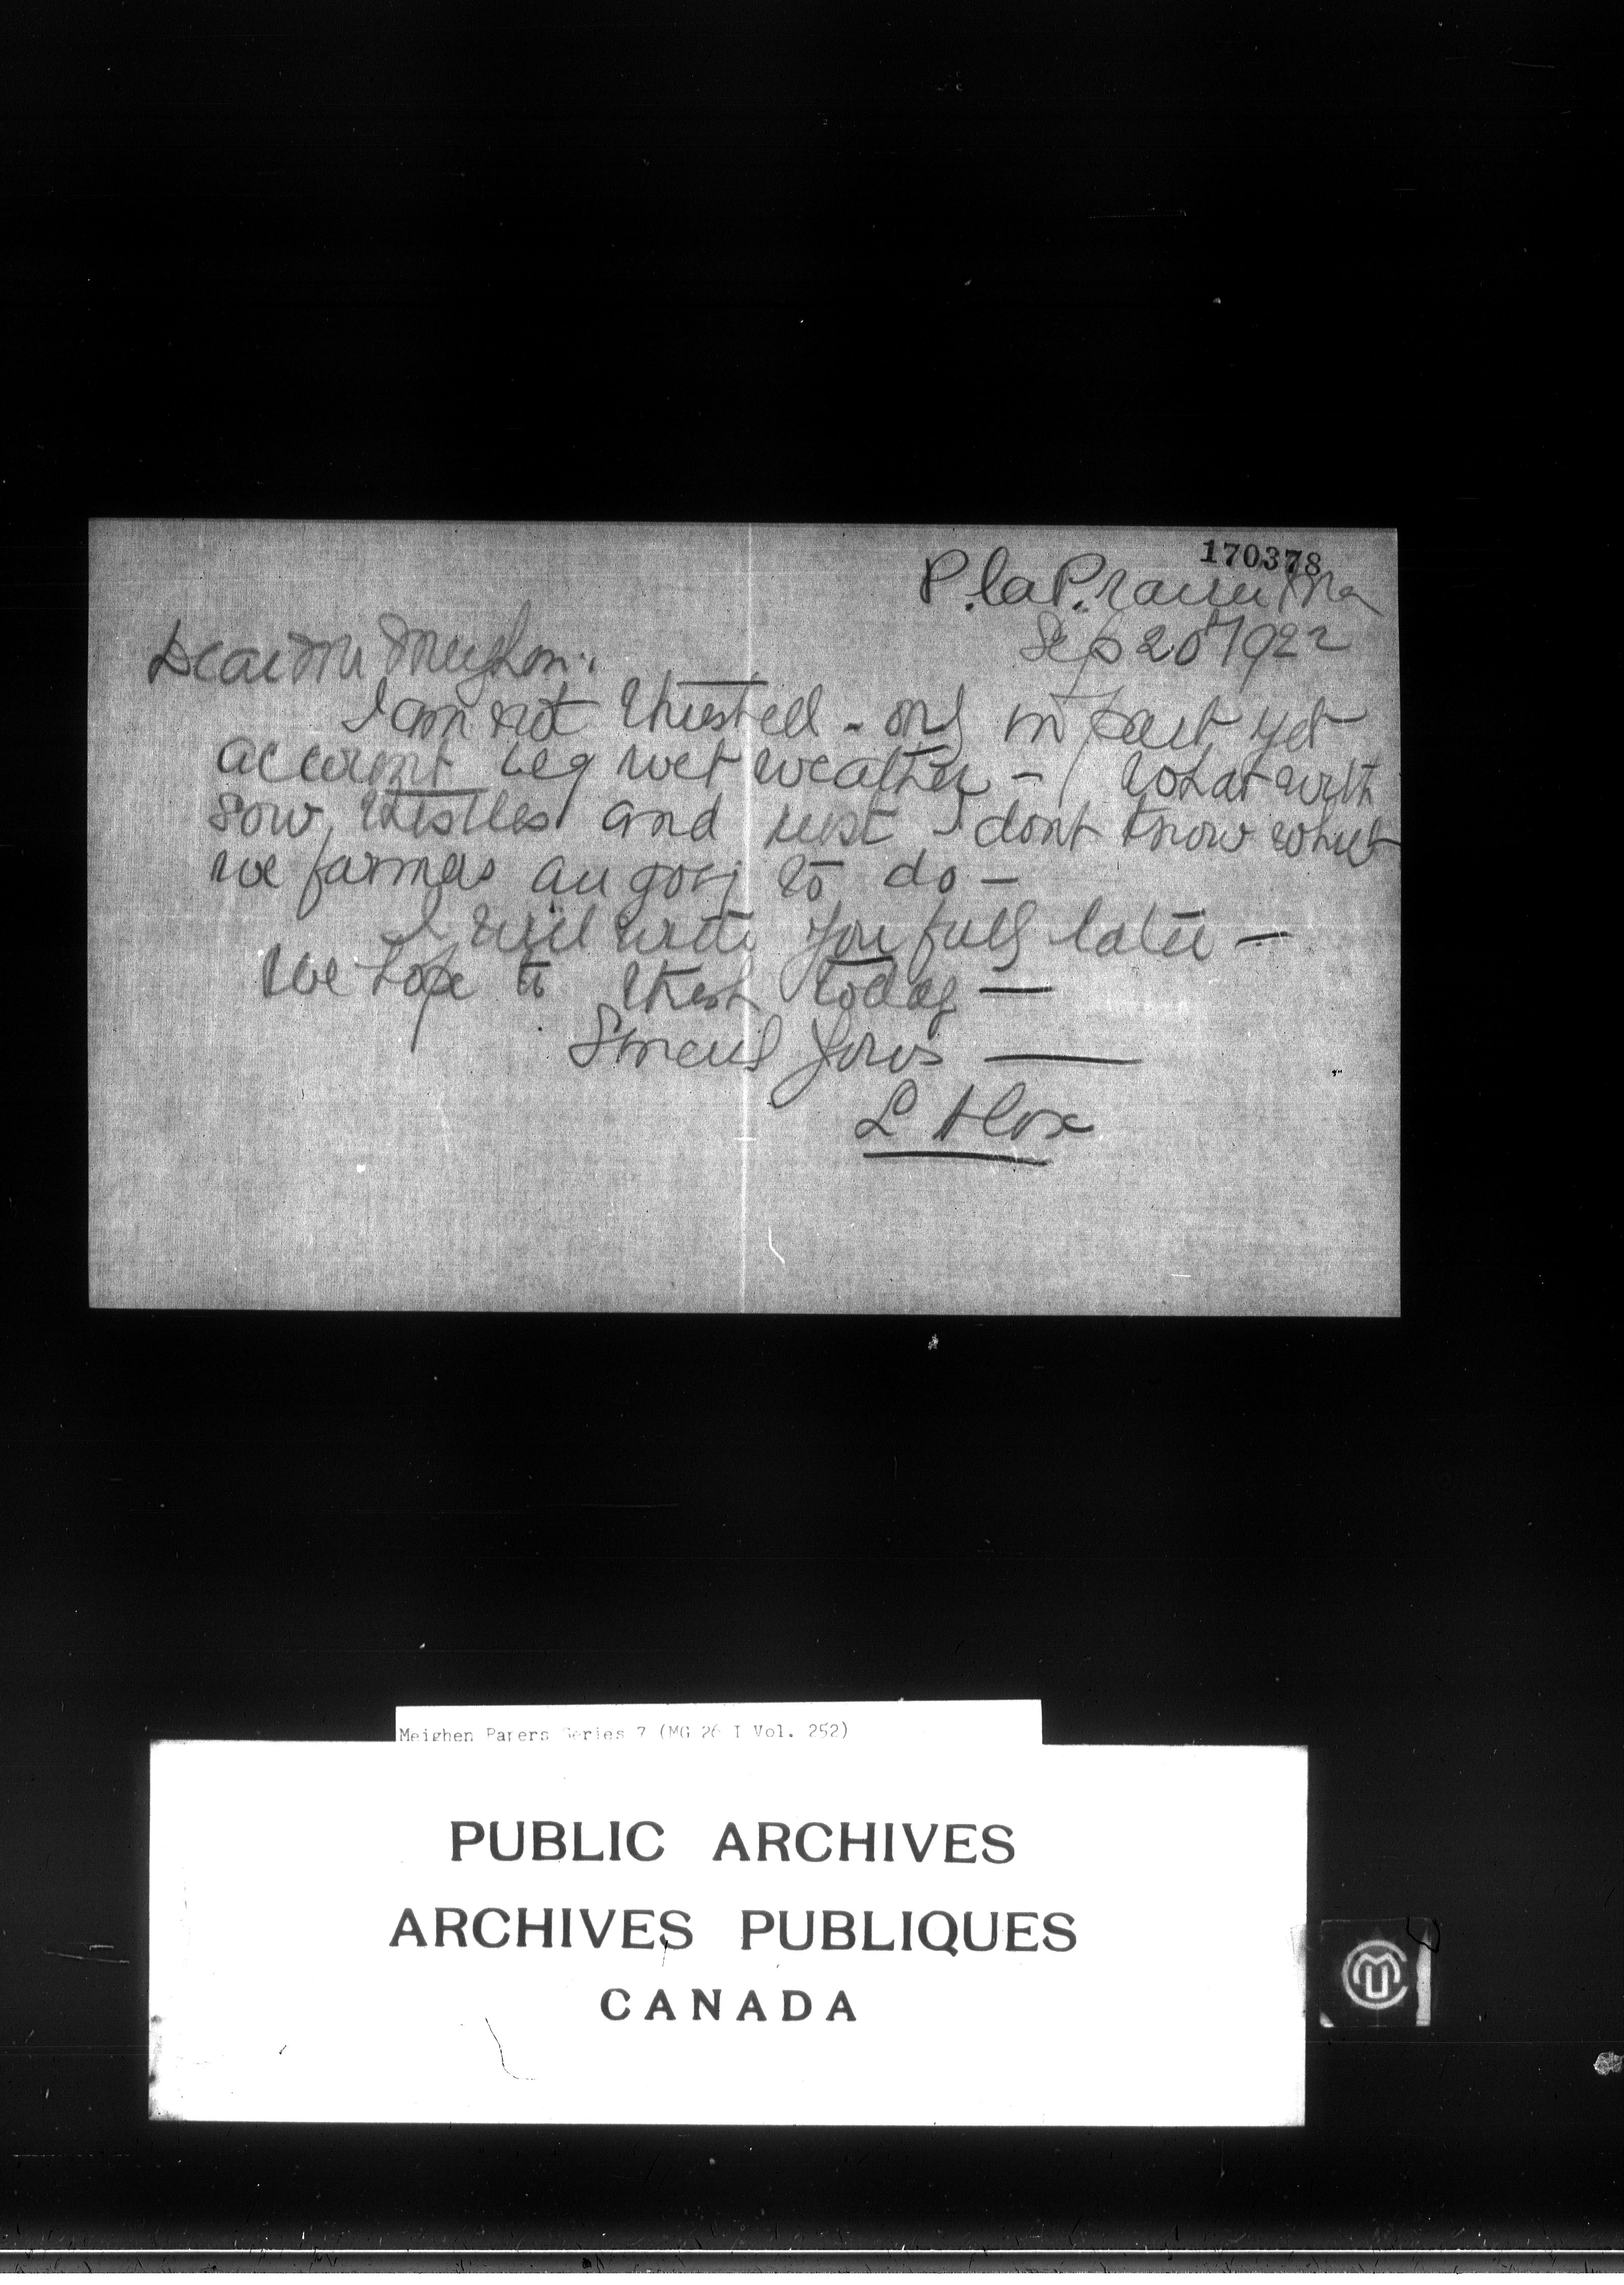 170378
P. la Prairie Ma
Sep 20th 1922
Dear Mr Meighen:
I am not threshed - only in part yet
account wet weather - What with
sow thistles and rust I dont know what
we farmers are going to do -
I will write you fully later -
We hope to thresh today -
Sincerely Yours
L
Meighen Papers Series 7 (MG 26 I Vol. 252)
PUBLIC ARCHIVES
ARCHIVES PUBLIQUES
CANADA